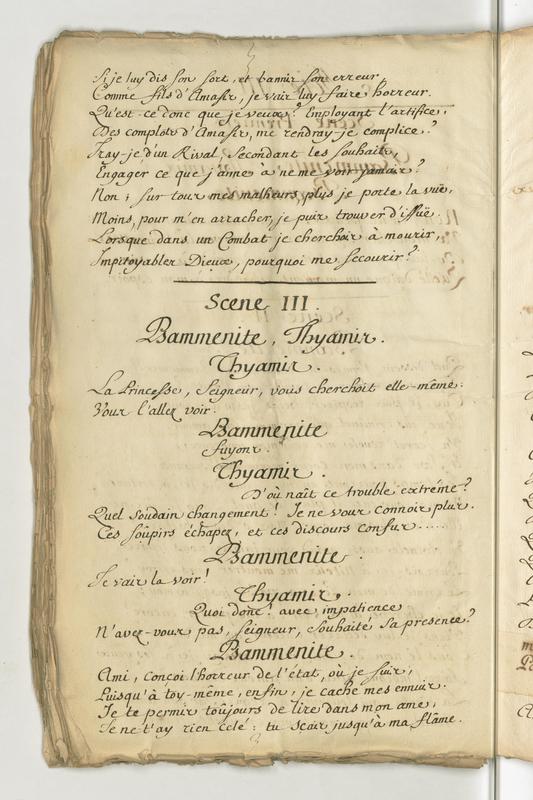 Si je luy dis son sort, et bannis son erreur,
Comme fils d'Amasis, je vais luy faire horreur.
Qu'est-ce donc que je veux? Employant l'artifice,
Des complots d'Amasis, me rendray-je complice?
Iray-je d'un Rival, Secondant les souhaits,
Engager ce que j'aime à ne me voir jamais?
Non; sur tous mes malheurs plus je porte la vuë,
Moins, pour m'en arracher, je puis trouver d'issuë.
Lorsque dans un Combat je cherchois à mourir,
Impitoyables Dieux, pourquoi me secourir?
Scene III.
Bammenite, Thyamis.
Thyamis.
La Princesse, Seigneur, vous cherchoit elle-même:
Vous l'allez voir.
Bammenite
fuyons.
Thyamis.
D'où naît ce trouble extrême?
Quel soudain changement! Je ne vous connois plus.
Ces soûpirs échapez, et ces discours confus.....
Bammenite.
Je vais la voir!
Thyamis.
Quoi donc! avec impatience
N'avez-vous pas, Seigneur, souhaité sa presence?
Bammenite.
Ami, conçoi l'horreur de l'état, où je suis,
Puisqu'à toy-même, enfin, je cache mes ennuis.
Je te permis toûjours de lire dans mon ame,
Je ne t'ay rien celé: tu sçais jusqu'à ma flâme.